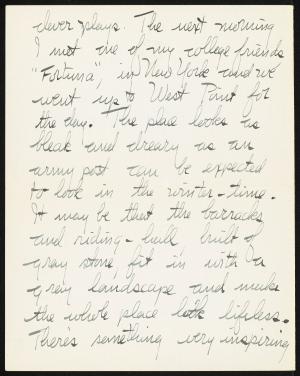 clever plays. The next morning
I met one of my college friends
"Fortuna", in New York and we
went up to West Point for
the day. The place looks as
bleak and dreary as an
army post can be expected
to look in the winter-time.
It may be that the barracks
and riding-hall built of
gray stone, fit in with a
grey landscape and make
the whole place look lifeless.
There's something very inspiring